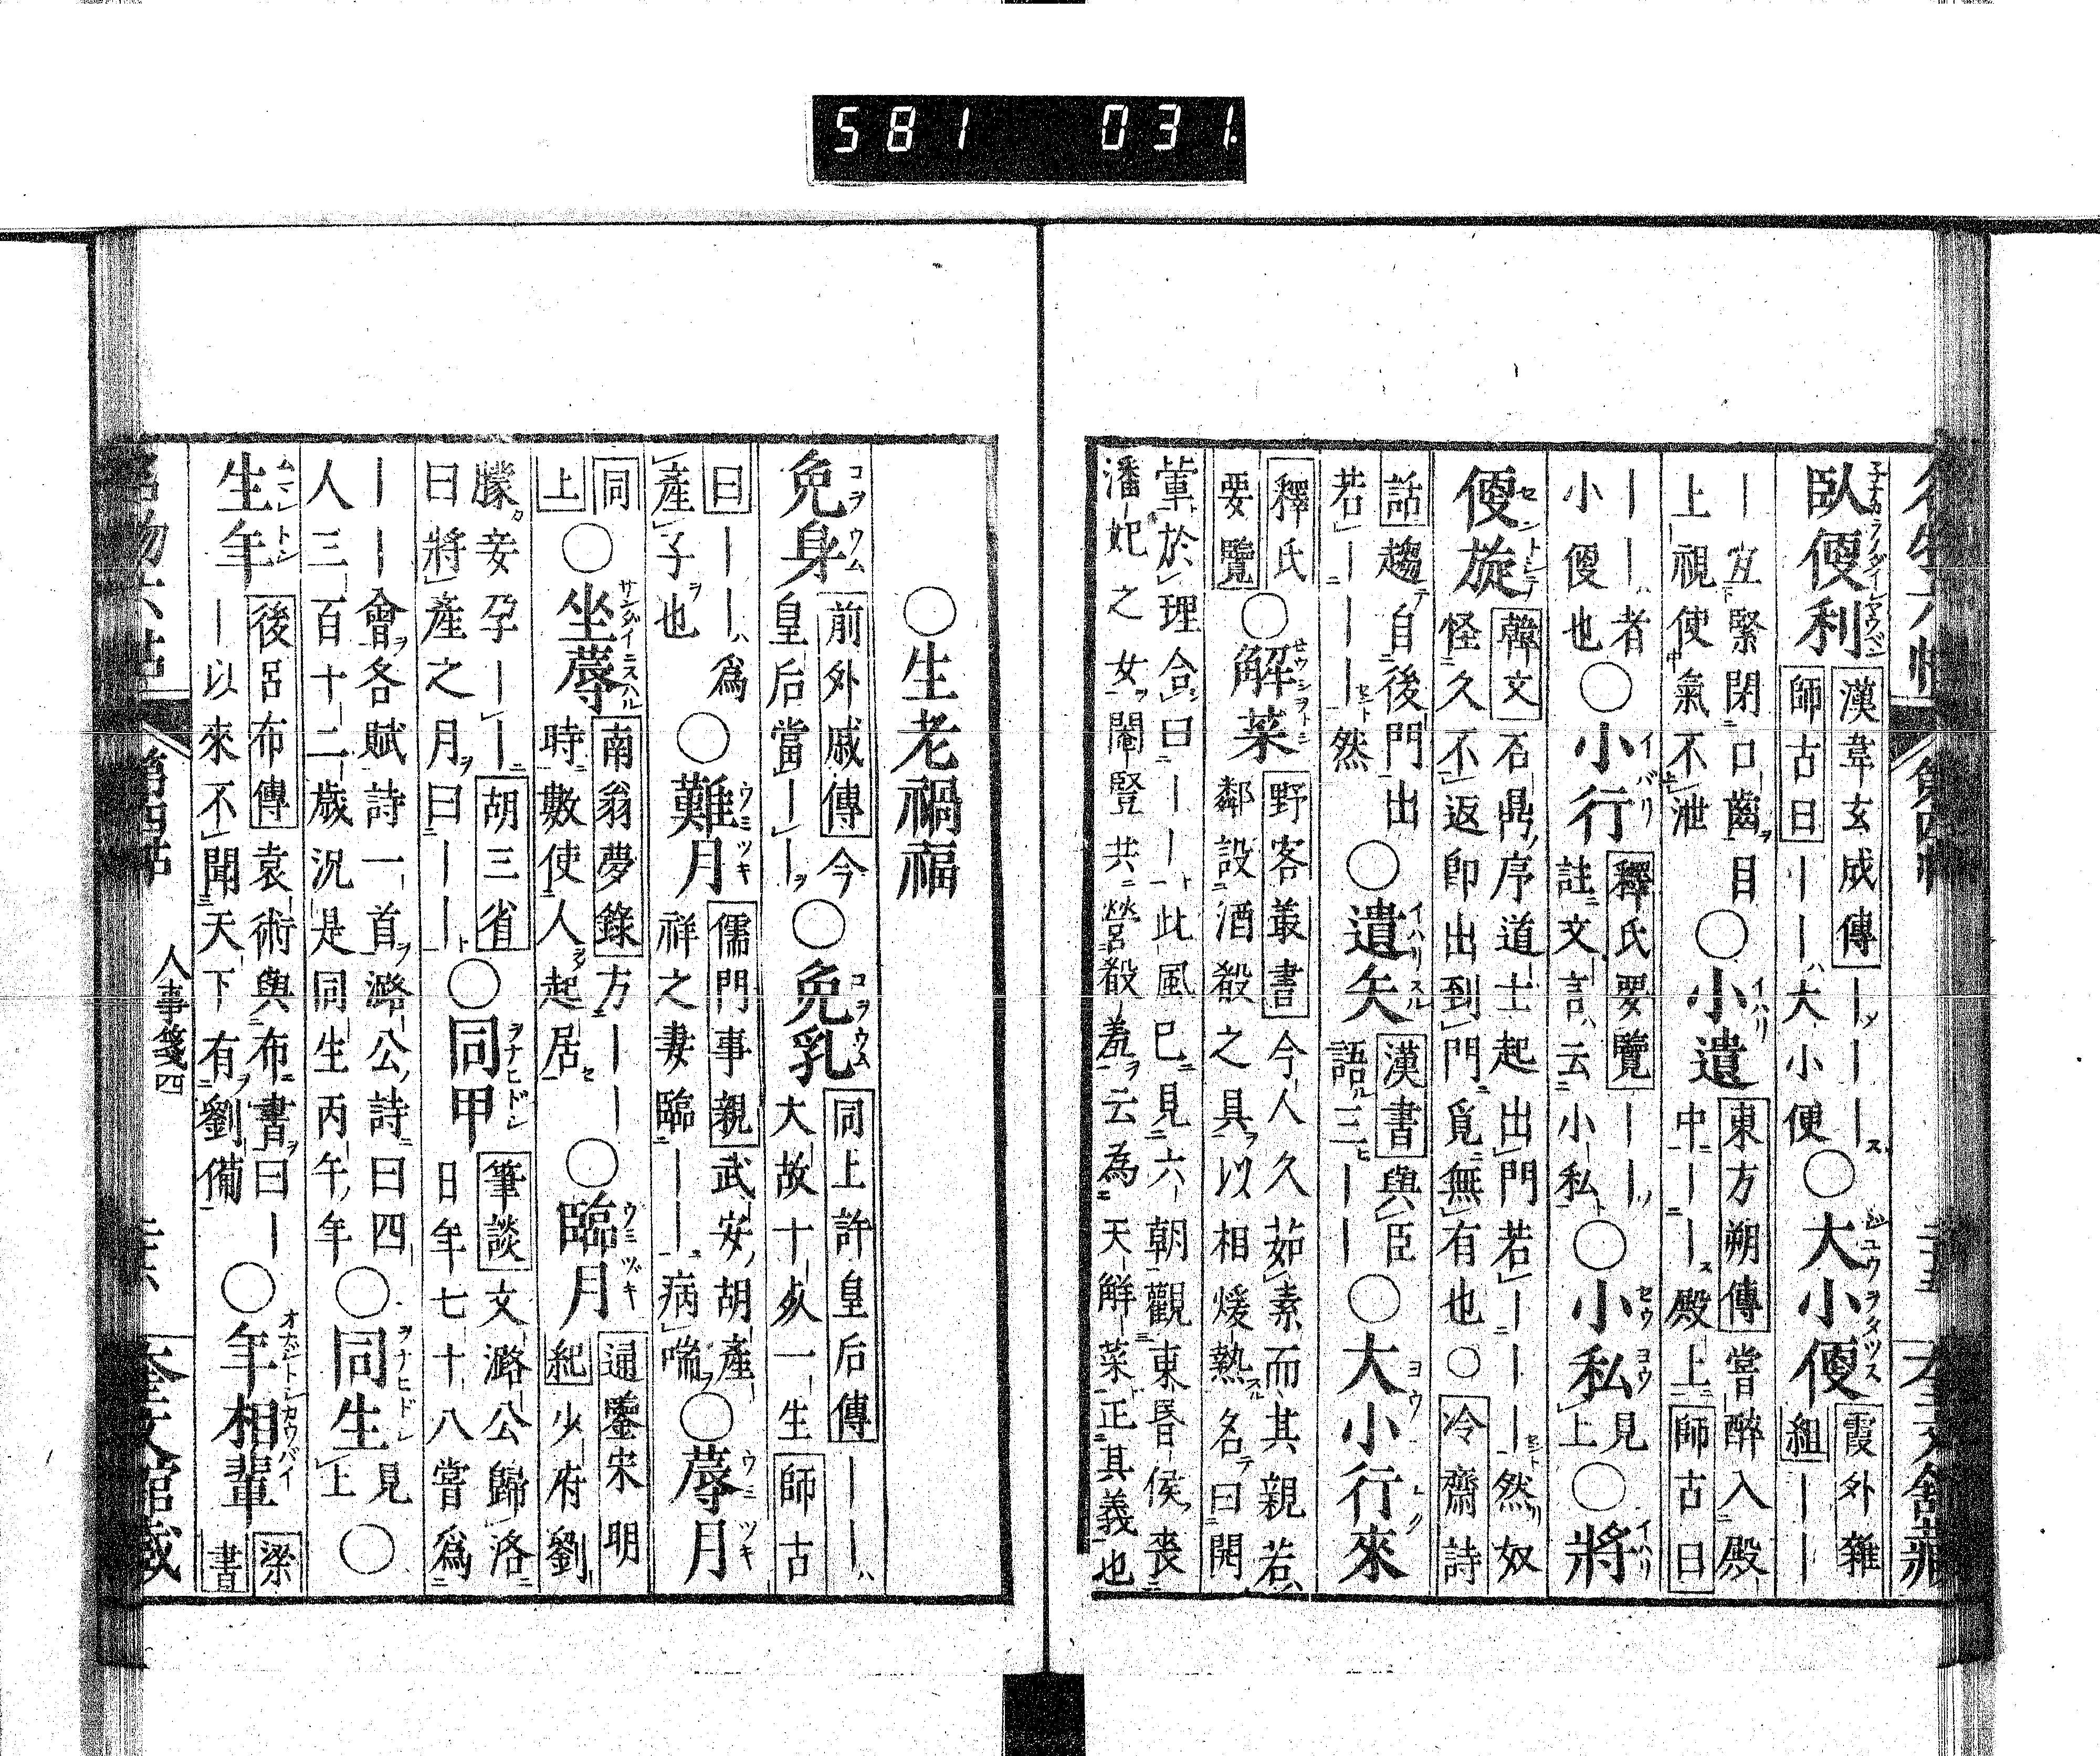 581 031
臥便利 漢韋玄成傳｜｜｜ 師古曰｜｜｜大小便 ○大小便 霞外雜俎｜｜
｜宜緊閉口齒目 上視使氣不泄 ○小遺 東方朔傳 嘗醉入殿中｜｜殿上 師古曰
｜｜者小便也 ○小行 釋氏要覽｜｜註文言云小私 ○小私 見上 ○將
便旋 韓文 石鼎序道士起出門若｜｜｜然奴怪久不返即出到門覓無有也 ○冷齋詩
話 趨自後門出若｜｜｜然 ○遺矢 漢書 與臣語三｜｜ ○大小行來
釋氏要覽 ○解菜 野客叢書 今人久茹素而其親若鄰設酒殽之具以相煖熱名曰開
葷於理合曰｜｜此風已見六朝觀東昏侯喪潘妃之女閹豎共營殽羞云為天解菜正其義也
○生老禍福
免身 前外戚傳 今皇后當｜｜ ○免乳 同上許皇后傳｜｜大故十死一生 師古
曰｜｜為產子也 ○難月 儒門事親 武安胡產祥之妻臨｜｜病喘 ○蓐月
同上 ○坐蓐 南翁夢錄 方｜｜時數使人起居 ○臨月 通鑒宋明紀 少府劉
朦妾孕｜｜ 胡三省曰將產之月曰｜｜ ○同甲 筆談 文潞公歸洛日年七十八嘗為
｜｜會各賦詩一首潞公詩曰四人三百十二歲況是同生丙午年 ○同生 見上 ○
生年 後呂布傳 袁術與布書曰｜｜以來不聞天下有劉備 ○年相輩 梁書
人事箋四